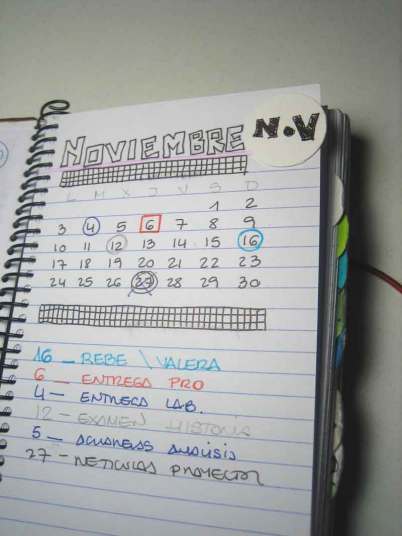 NOVIEMBRE
N.V
L M X J V S D
1 2
3 4 5 6 7 8 9
10 11 12 13 14 15 16
17 18 19 20 21 22 23
24 25 26 27 28 29 30
16 - REBE \ VALERA
6 - ENTREGA PRO
4 - ENTREGA LAB.
12 - EXAMEN HISTORIA
5 - ANALISIS
27 -